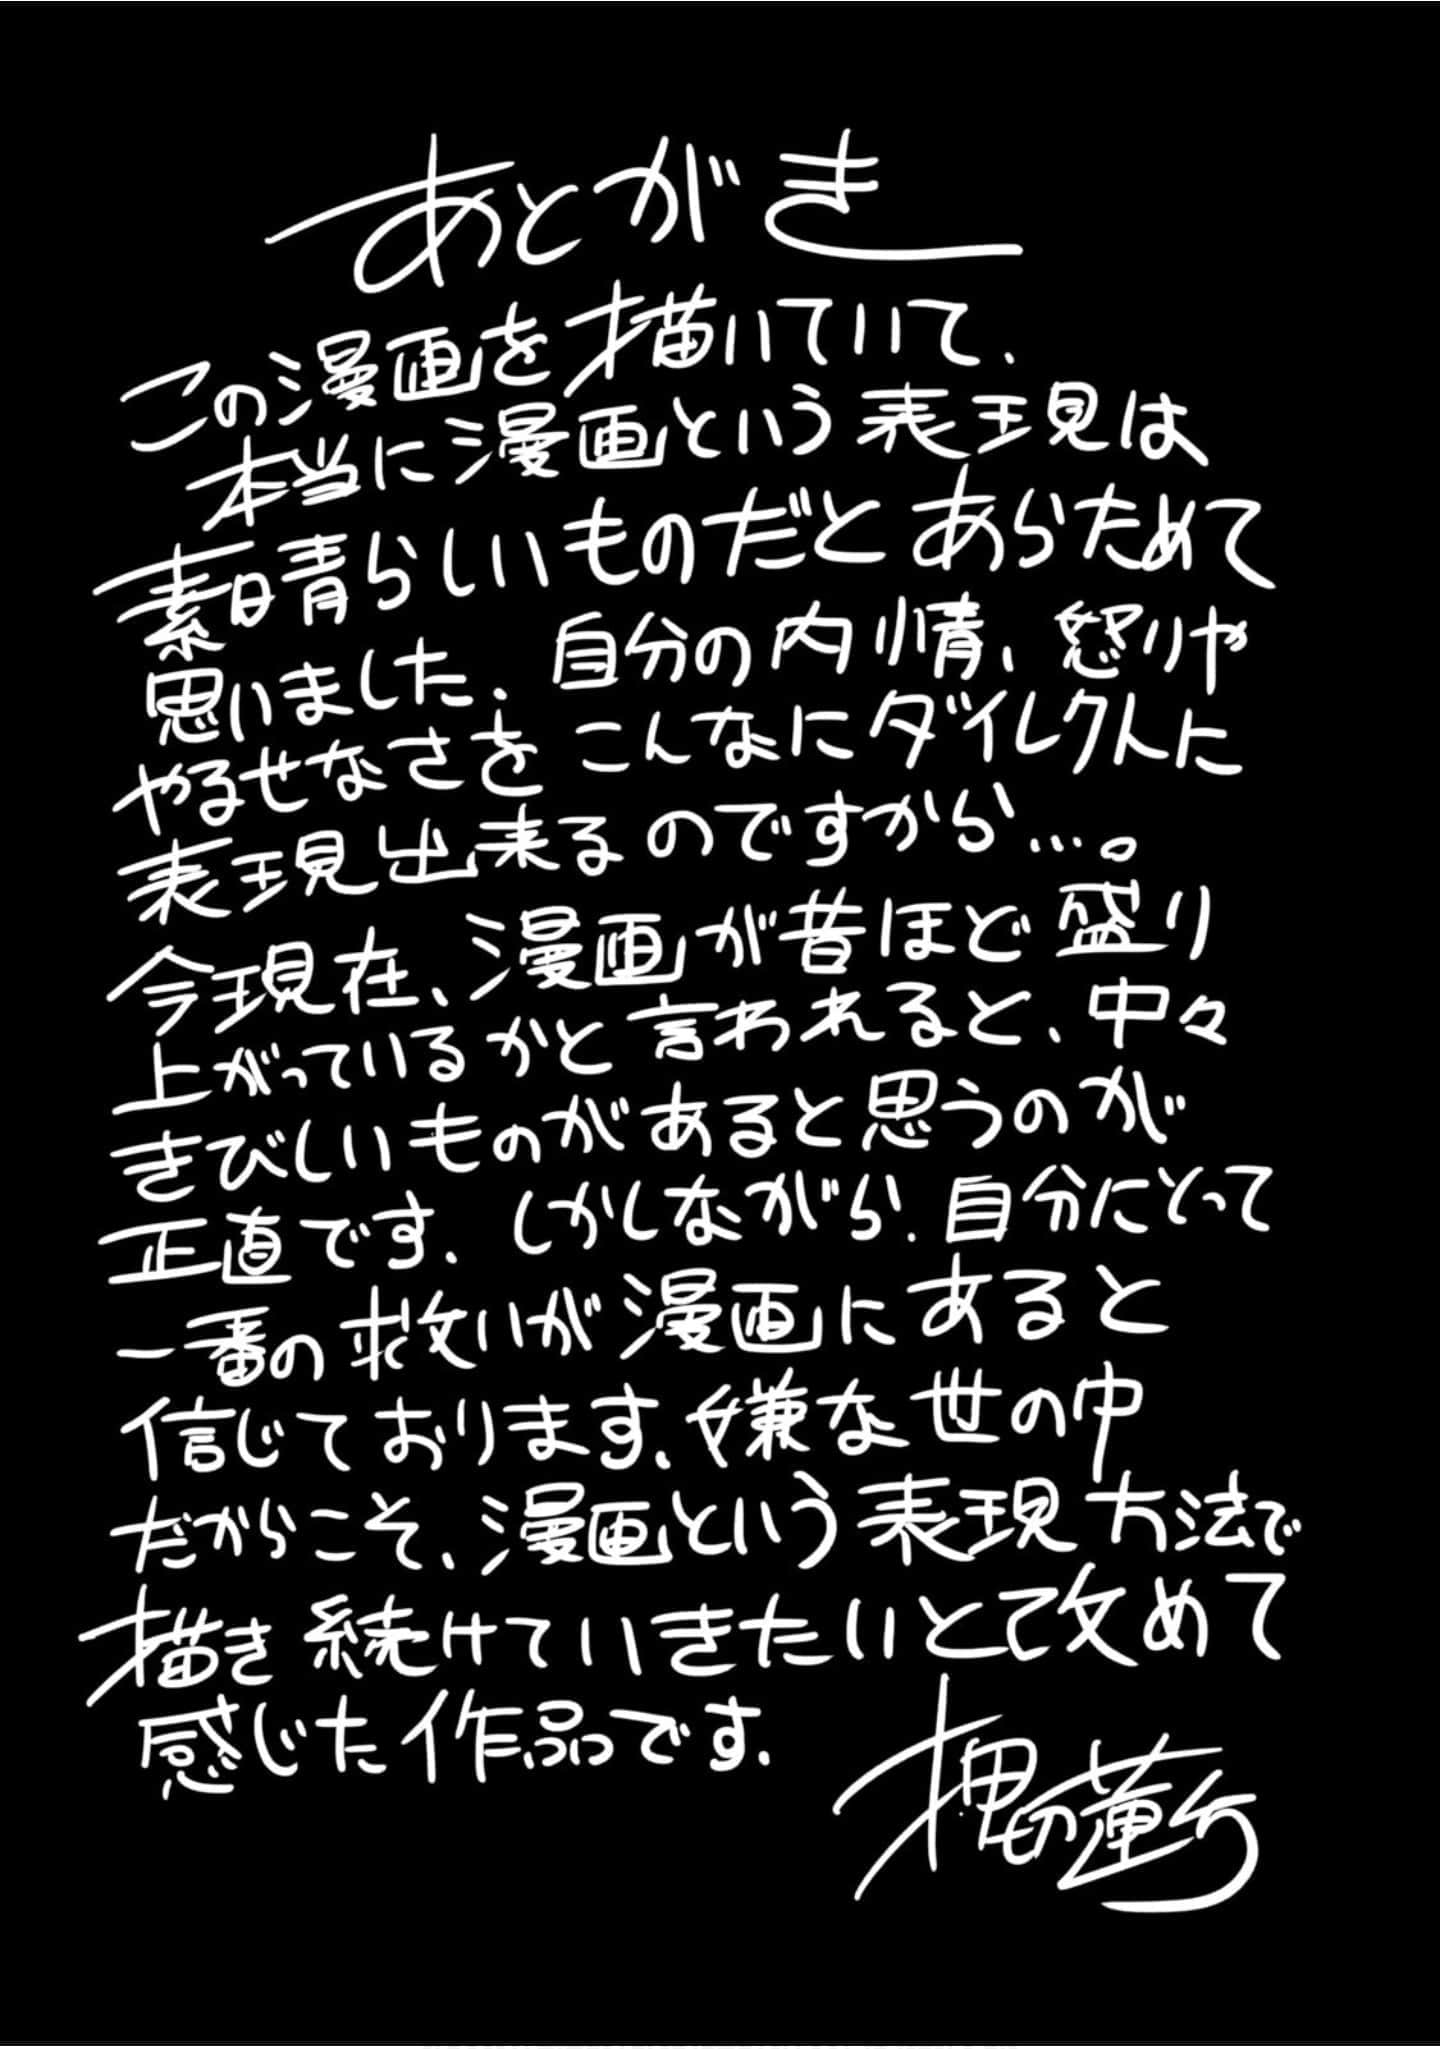 あとがき
この漫画を描いていて、
本当に漫画という表現は
素晴らしいものだとあらためて
思いました。自分の内情、怒りや
やるせなさをこんなにダイレクトに
表現出来るのですから…。
今現在、漫画が昔ほど盛り
上がっているかと言われると、中々
きびしいものがあると思うのが
正直です。しかしながら、自分にとって
一番の救いが漫画にあると
信じております。嫌な世の中
だからこそ、漫画という表現方法で
描き続けていきたいと改めて
感じた作品です。